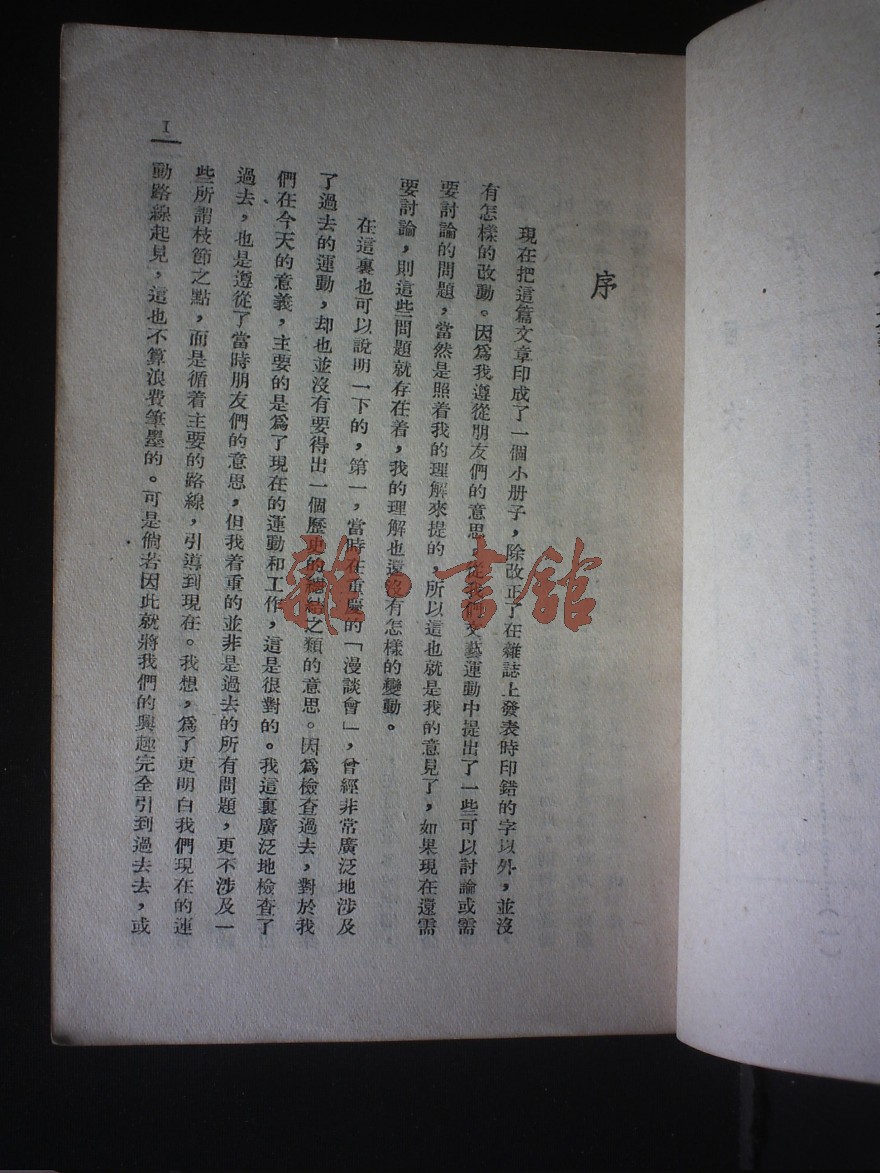 序
現在把這篇文章印成了一個小册子，除改正了在雜誌上發表時印錯的字以外，並沒
有怎樣的改動。因爲我遵從朋友們的意思，從我們文藝運動中提出了一些可以討論或需
要討論的問題，當然是照着我的理解來提的，所以這也就是我的意見了，如果現在還需
要討論，則這些問題就存在着，我的理解也還沒有怎樣的變動。
在這裏也可以說明一下的，第一，當時在重慶的「漫談會」，曾經非常廣泛地涉及
了過去的運動，却也並沒有要得出一個歷史的總結之類的意思。因爲檢查過去，對於我
們在今天的意義，主要的是爲了現在的運動和工作，這是很對的。我這裏廣泛地檢查了
過去，也是遵從了當時朋友們的意思，但我着重的並非是過去的所有問題，更不涉及一
些所謂枝節之點，而是循着主要的路線，引導到現在。我想，爲了更明白我們現在的運
動路線起見，這也不算浪費筆墨的。可是倘若因此就將我們的興趣完全引到過去去，或
I
雜·書館
(1)